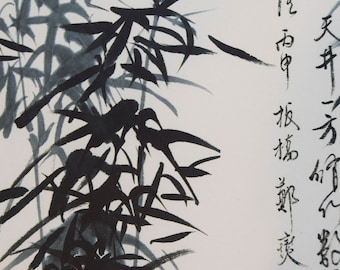 天井一方修竹數
丙申板橋鄭燮